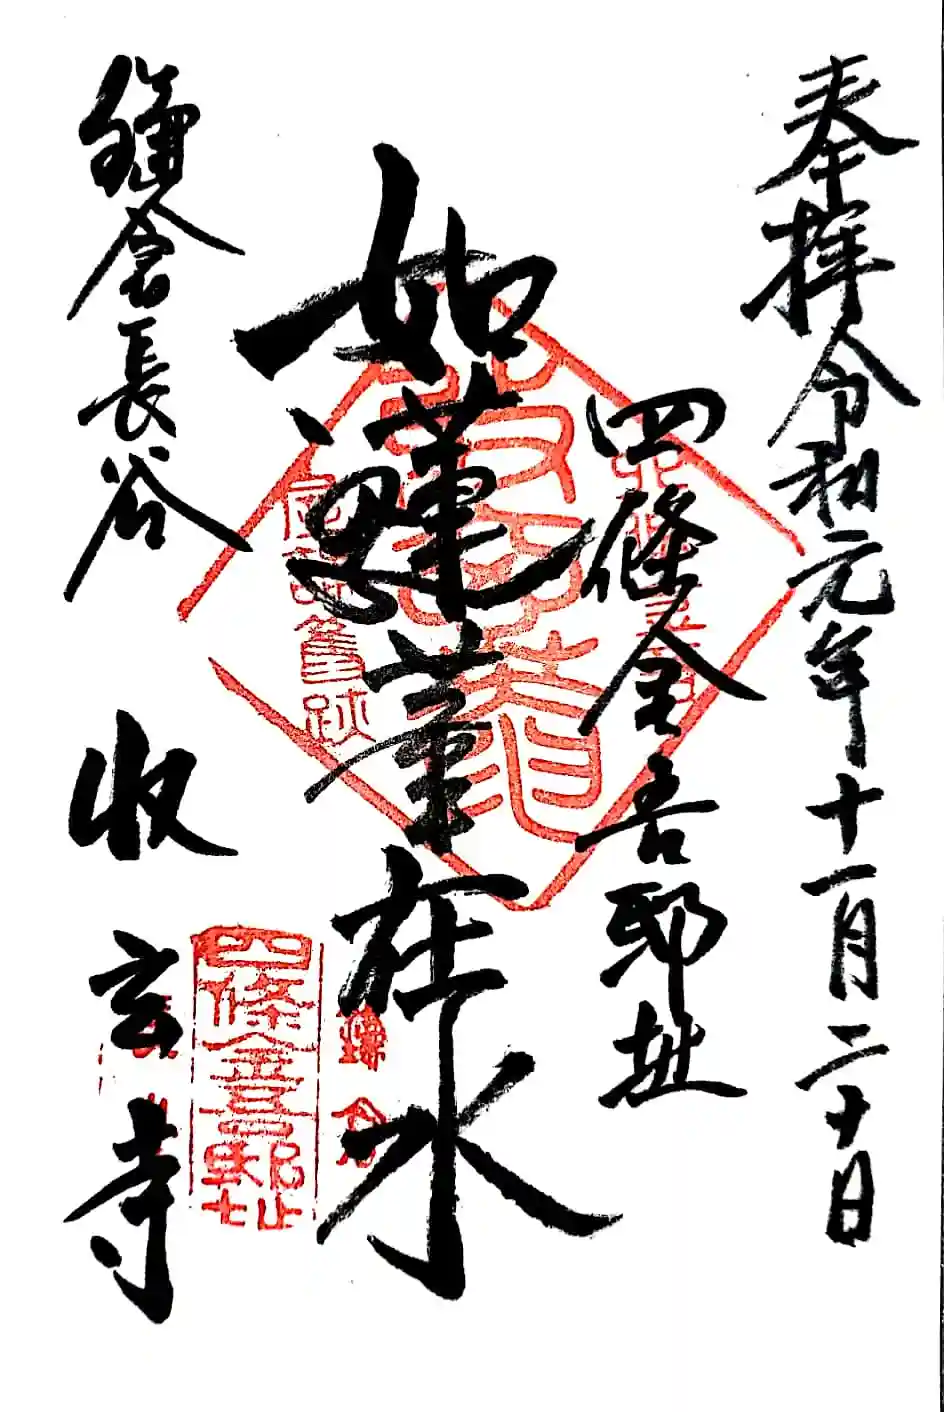 奉拝 令和元年十一月二十日
四條金吾邸址
如蓮華在水
鎌倉長谷
収玄寺
四條金吾邸址